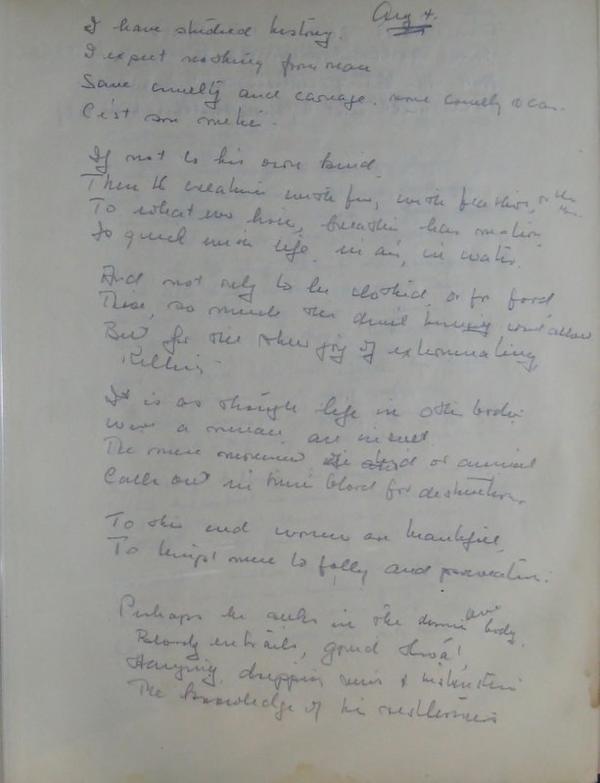 Aug 4.
I have studied history.
I expect nothing from man
Save cruelty and carnage.
C'est son metier.
If not to his own kind
Then to creatures with fur, with feathers, or
To what we have, breathes has motion
Is quick with life, in air, in water.
And not only to be clothed, or for food
These, so much the devil would allow
But for the sheer joy of exterminating,
Killing
It is as though life in other bodies
were a menace, an insult
The mere movement of bird or animal
Calls out in him blood for destruction.
To this end women are beautiful,
To tempt men to folly and procreation.
Perhaps he seeks in the body,
Bloody entrails, good
Hanging, dripping &
The knowledge of his